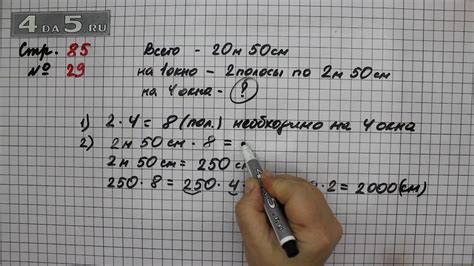 4DA5.RU
Стр. 85
№ 29
Всего - 20м 50см
на 1 окно - 2 полосы по 2м 50см
на 4 окна - ?
1) 2 · 4 = 8 (пол.) необходимо на 4 окна
2) 2м 50см · 8 =
2м 50см = 250 см
250 · 8 = 250 · 4 · 2 = 2000 (см)